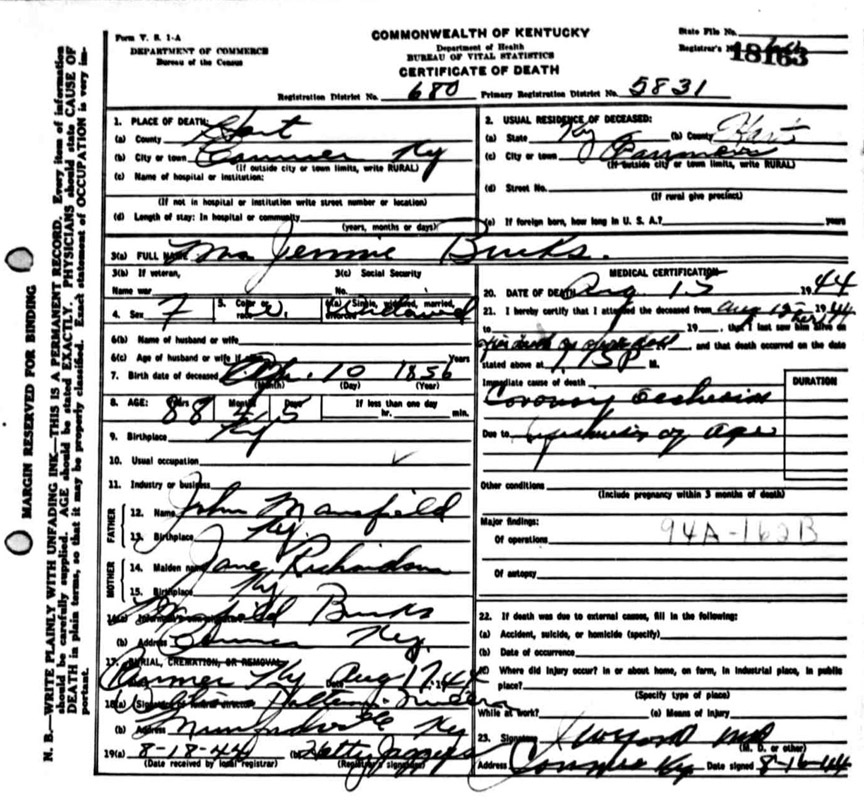 Form V. S. 1-A
DEPARTMENT OF COMMERCE
Bureau of the Census
COMMONWEALTH OF KENTUCKY
Department of Health
BUREAU OF VITAL STATISTICS
CERTIFICATE OF DEATH
State File No.
Registrar's No.
18163
Registration District No. 680 Primary Registration District No. 5831
MARGIN RESERVED FOR BINDING
N. B.—WRITE PLAINLY WITH UNFADING INK—THIS IS A PERMANENT RECORD. Every item of information
should be carefully supplied. AGE should be stated EXACTLY. PHYSICIANS should state CAUSE OF
DEATH in plain terms, so that it may be properly classified. Exact statement of OCCUPATION is very im-
portant.
1. PLACE OF DEATH:
(a) County Hart
(b) City or town Canmer Ky
(If outside city or town limits, write RURAL)
(c) Name of hospital or institution:
(If not in hospital or institution write street number or location)
(d) Length of stay: In hospital or community
(years, months or days)
2. USUAL RESIDENCE OF DECEASED:
(a) State Ky (b) County Hart
(c) City or town Canmer
(If outside city or town limits, write RURAL)
(d) Street No.
(If rural give precinct)
(e) If foreign born, how long in U. S. A.? years
3(a) FULL NAME Mrs Jennie Burks.
3(b) If veteran,
Name war
3(c) Social Security
No.
4. Sex F 5. Color or race W. 6(a) Single, widowed, married, divorced Widowed
6(b) Name of husband or wife
6(c) Age of husband or wife if alive Years
7. Birth date of deceased Apr. 10 1856
(Month) (Day) (Year)
8. AGE: Years 88 Months 4 Days 5 If less than one day
hr. min.
9. Birthplace Ky
10. Usual occupation
11. Industry or business
FATHER
12. Name John Mansfield
13. Birthplace Ky.
MOTHER
14. Maiden name Jane Richardson
15. Birthplace Ky
16(a) Informant's signature Mansfield Burks
(b) Address Canmer Ky.
17. BURIAL, CREMATION, OR REMOVAL
Canmer Ky Date Aug 17, 1944
18(a) Signature of funeral director
(b) Address Munfordville Ky
19(a) 8-18-44 (b) Hetty Jaggers
(Date received by local registrar) (Registrar's signature)
MEDICAL CERTIFICATION
20. DATE OF DEATH Aug 15 1944
21. I hereby certify that I attended the deceased from Aug 15 1944
to 19 , that I last saw h alive on
, and that death occurred on the date
stated above at 1 15P M.
Immediate cause of death
DURATION
Coronary
Due to of age
Other conditions
(Include pregnancy within 3 months of death)
Major findings:
Of operations 94A-162B
Of autopsy
22. If death was due to external causes, fill in the following:
(a) Accident, suicide, or homicide (specify)
(b) Date of occurrence
(c) Where did injury occur? In or about home, on farm, in industrial place, in public
place?
(Specify type of place)
While at work? (e) Means of injury
23. Signature MD
(M. D. or other)
Address Canmer Ky. Date signed 8-16-44